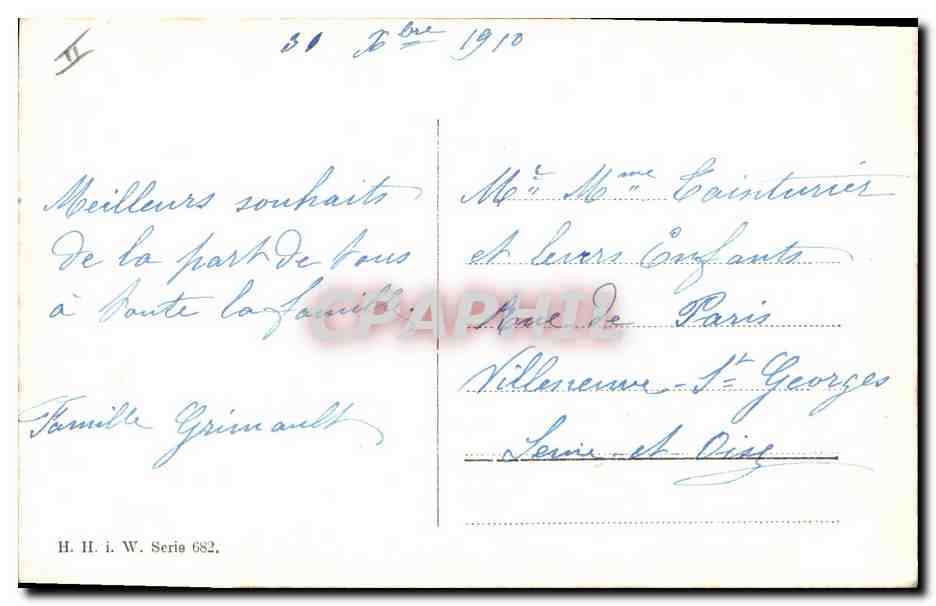 II
31 Xbre 1910
Meilleurs souhaits
de la part de tous
à toute la famille.
Famille Grimault
H. H. i. W. Serie 682.
Mr Mme Tainturier
et leurs Enfants
Rue de Paris
Villeneuve-St Georges
Seine et Oise
CPAPHIL